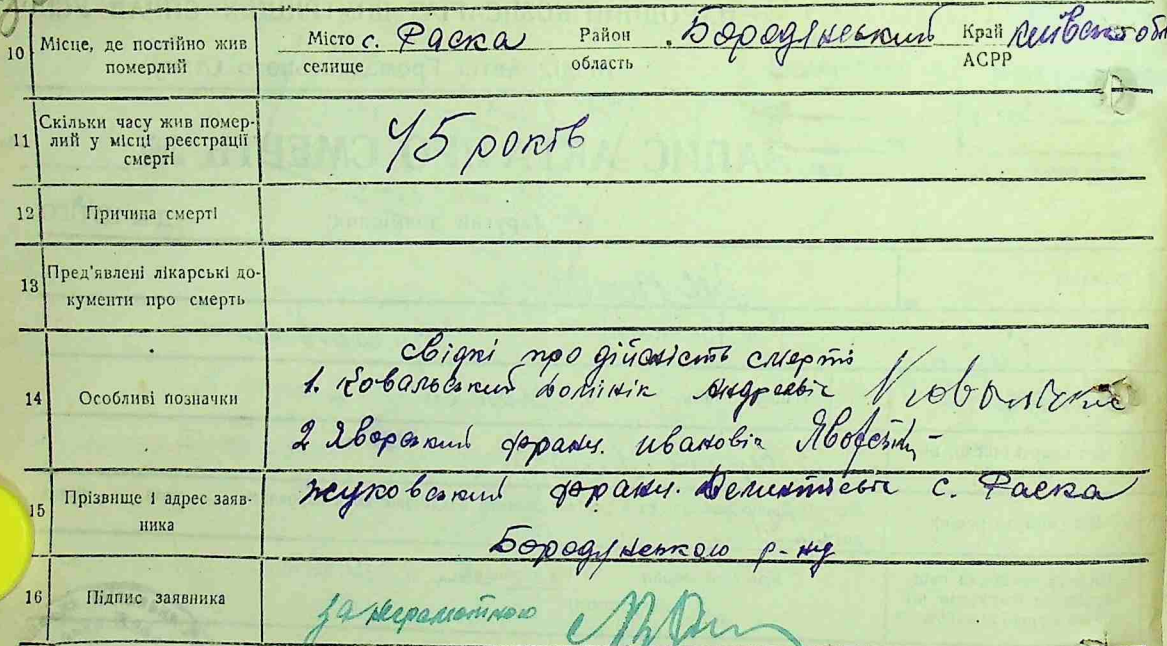 10 Місце, де постійно жив померлий Місто с. Раска Район Бородянський Край Київськ обл
селище область АСРР
11 Скільки часу жив помер-
лий у місці реєстрації
смерті
45 років
12 Причина смерті
13 Пред'явлені лікарські до-
кументи про смерть
14 Особливі позначки
свідкі про дійсність смерті
1. Ковальский Домінік Андреевіч
2 Яворский Франц. Ивановіч
15 Прізвище і адрес заяв-
ника
Жуковский Франц. с. Раска
Бородянського р-ну
16 Підпис заявника
за неграмотного